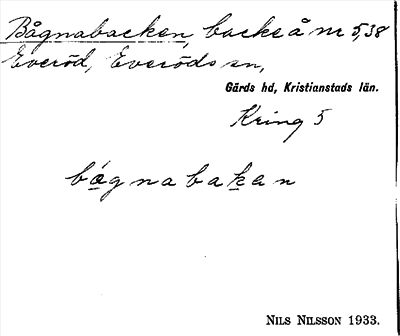 Bågnabacken, backe å nr 5,38
Everöd, Everöds sn,
Gärds hd, Kristianstads län.
Kring 5
bǫgnabakan
NILS NILSSON 1933.